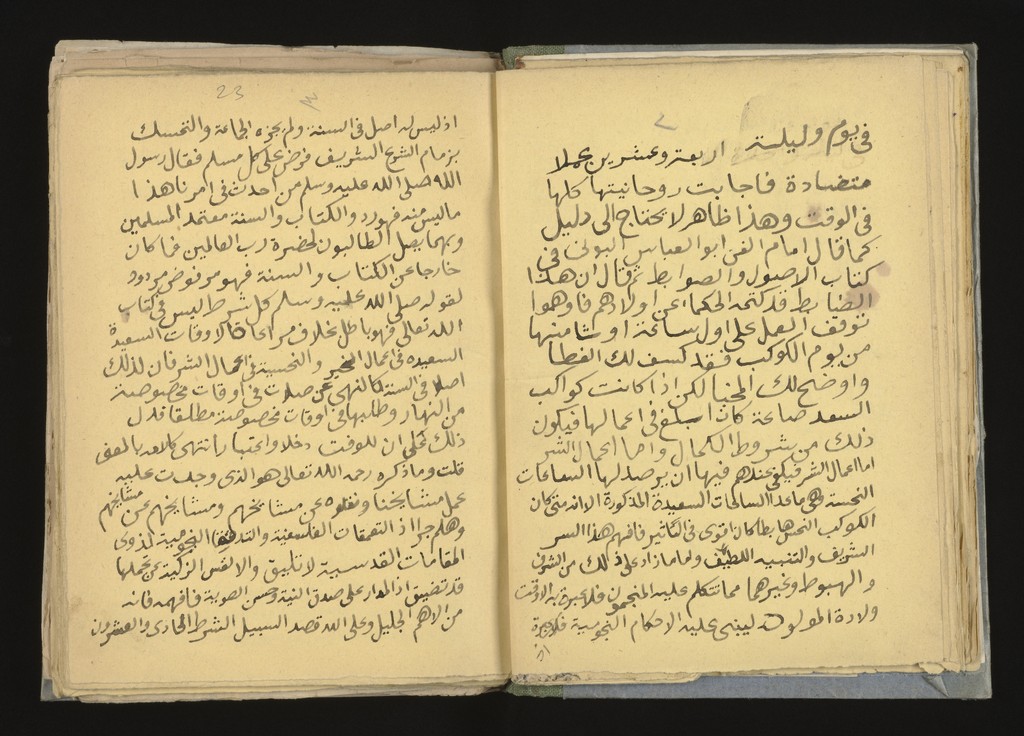 في يوم وليلة اربعة وعشرين عملا
متضادة فاجابت روحانيتها كلها
في الوقت وهذا ظاهر لا يحتاج الى دليل
كما قال امام الفن ابو العباس البونى في
كتاب الاصول والضوابط ثم قال ان هذا
الضابط قد كتمه الحكما عن اولادهم فاوهموا
توقف العمل على اول ساعة او ثامنها
من يوم الكوكب فقد كشف لك الغطا
واوضح لك المخبا لكن اذا كانت كواكب
السعد صاعة كان ابلغ في اعمالها فيكون
ذلك من شروط الكمال واما اعمال الشر
اما اعمال الشر فيكفي عندهم فيها ان يرصد لها الساعات
النحسة وهي ما عدا الساعات السعيدة المذكورة الا انه متى كان
الكوكب النحس هابطا كان اقوى في التاثير فافهم هذا السر
الشريف والتنبيه اللطيف واما ما زاد على ذلك من الشرف
والهبوط وغيرهما مما تتكلم عليه المنجمون فلا عبرة به الا وقت
ولادة المولود ليبنى عليه الاحكام النجومية فلا عبرة
23
اذ ليس له اصل في السنة ولم يجزه الجماعة والتمسك
بزمام الشرع الشريف فرض على كل مسلم فقال رسول
الله صلى الله عليه وسلم من احدث في امرنا هذا
ما ليس منه فهو رد والكتاب والسنة معتمد المسلمين
وبهما يصل الطالبون لحضرة رب العالمين فما كان
خارجا عن الكتاب والسنة فهو مرفوض مردود
لقوله صلى الله عليه وسلم كل شرط ليس في كتاب
الله تعالى فهو باطل بخلاف مراعاة الاوقات السعيدة
السعيده في اعمال الخير والنحسية في اعمال الشر فان لذلك
اصلا في السنة كالنهي عن صلات في اوقات مخصوصة
من النهار وطلبها في اوقات مخصوصة مطلقا فدل
ذلك على ان للوقت دخلا واعتبارا انتهى كلامه بالمعنى
قلت وما ذكره رحمه الله تعالى هو الذى وجدت عليه
عمل مشايخنا ونقلوه عن مشايخهم ومشايخهم عن مشايخهم
وهلم جرا اذ التعمقات الفلسفية والتدقيقات النجومية لذوى
المقامات القدسية لا تليق والانفس الزكية عن عملها
قد تضيق اذ المدار على صدق النية وحسن الطوية فافهمه فانه
من الاهم الجليل وعلى الله قصد السبيل الشرط الحادى والعشرون